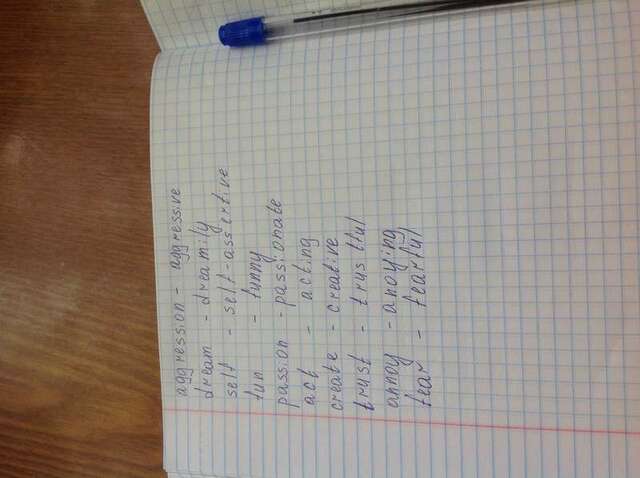 aggression - aggressive
dream - dreamily
self - self-assertive
fun - funny
passion - passionate
act - acting
create - creative
trust - trustful
annoy - anoying
fear - fearful